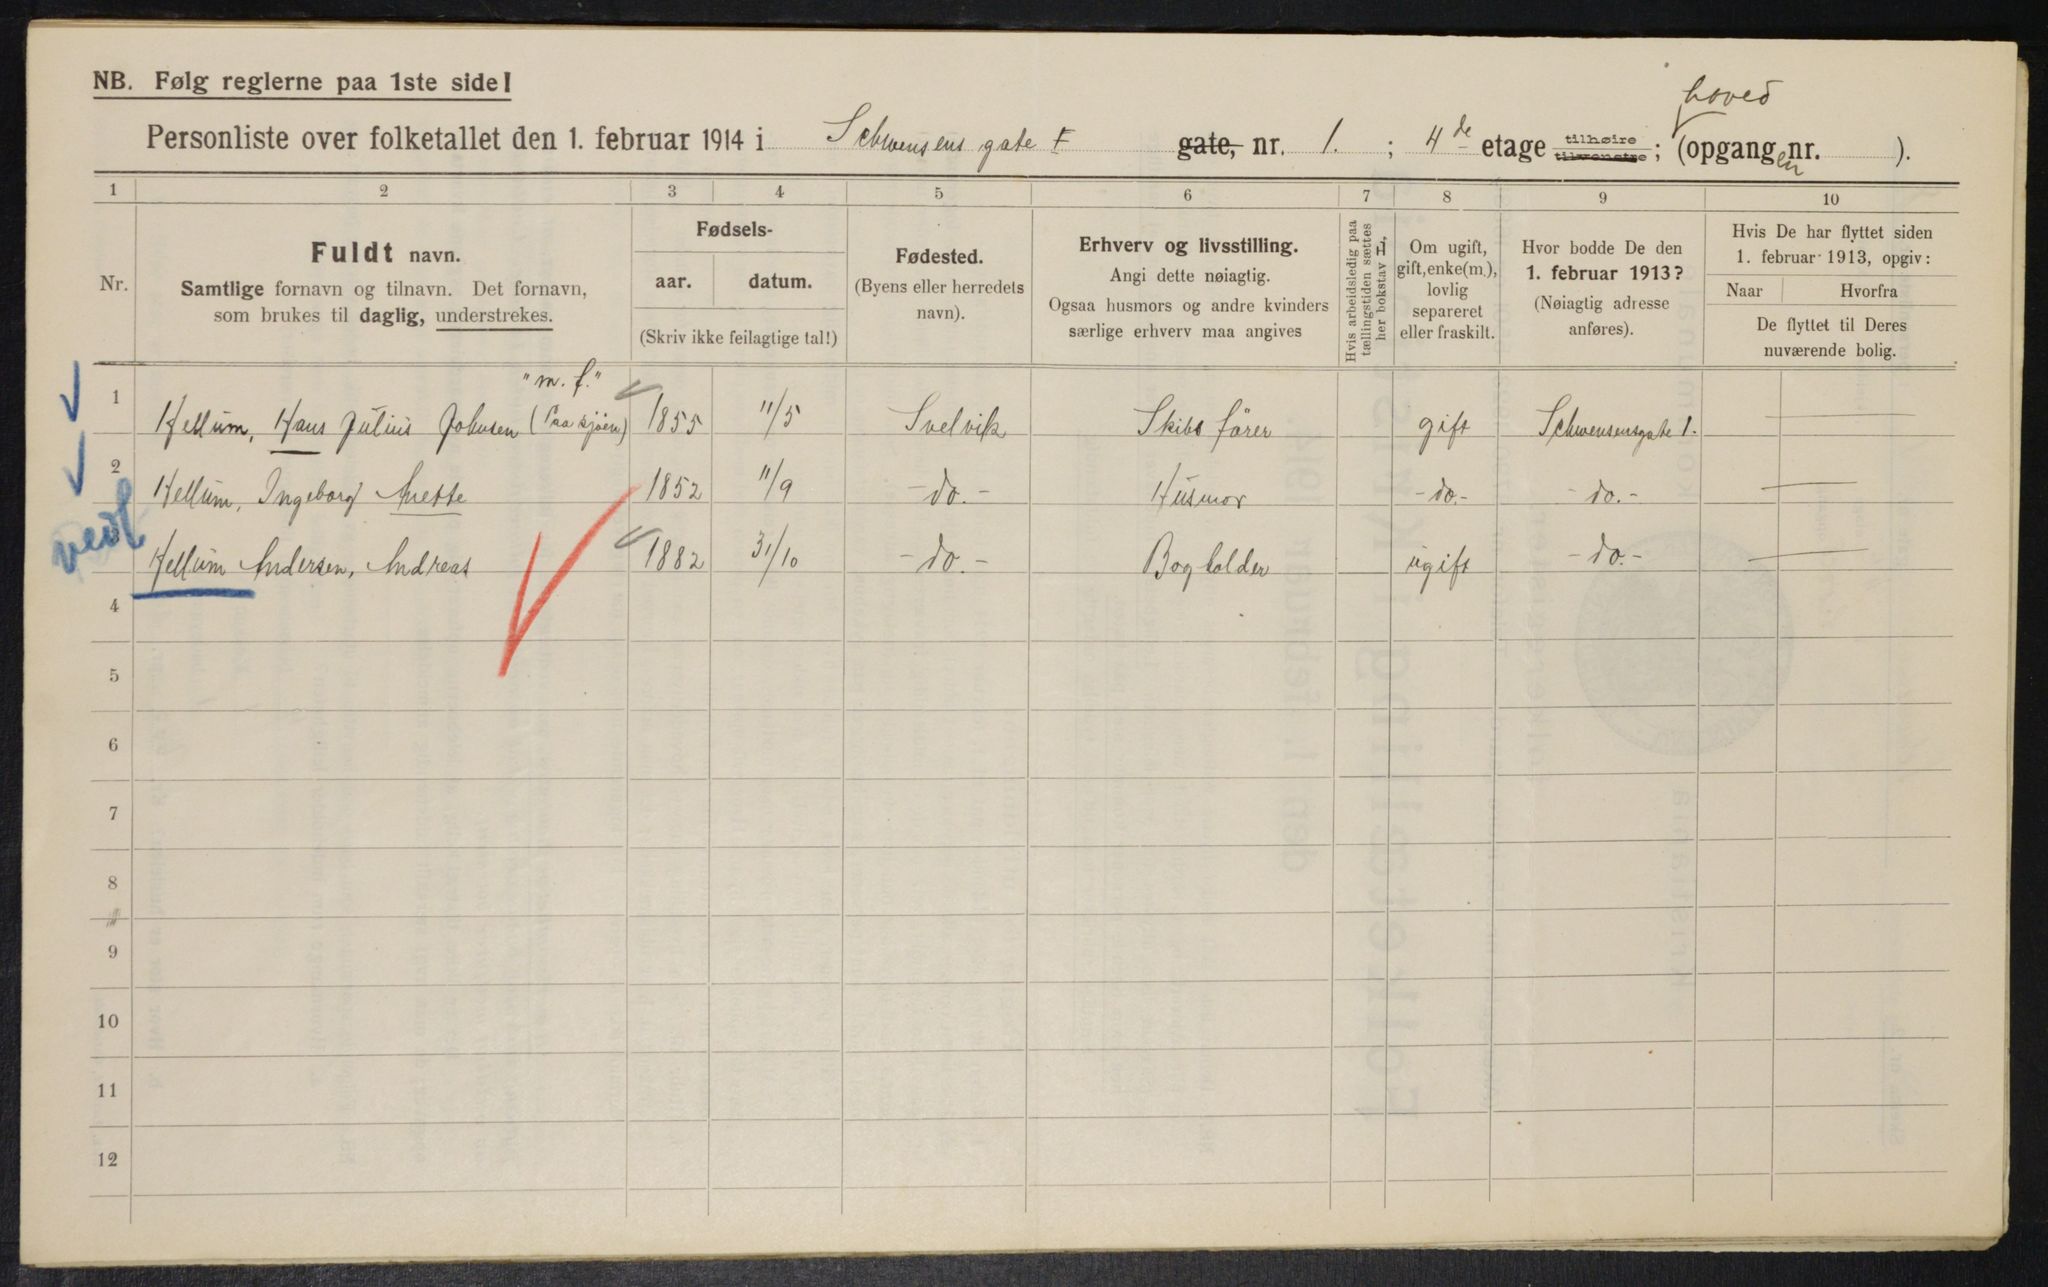 NB. Følg reglerne paa 1ste side!
hoved
Personliste over folketallet den 1. februar 1914 i Schwensens gate gate, nr. 1. ; 4de etage tilhøire tilvenstre ; (opgangen nr. ).
1 2 3 4 5 6 7 8 9 10
Nr.
Fuldt navn.
Samtlige fornavn og tilnavn. Det fornavn,
som brukes til daglig, understrekes.
Fødsels-
aar. datum.
(Skriv ikke feilagtige tal!)
Fødested.
(Byens eller herredets
navn).
Erhverv og livsstilling.
Angi dette nøiagtig.
Ogsaa husmors og andre kvinders
særlige erhverv maa angives
Hvis arbeidsledig paa
tællingstiden sættes
her bokstav L.
Om ugift,
gift, enke(m.),
lovlig
separeret
eller fraskilt.
Hvor bodde De den
1. februar 1913?
(Nøiagtig adresse
anføres).
Hvis De har flyttet siden
1. februar 1913, opgiv:
Naar Hvorfra
De flyttet til Deres
nuværende bolig.
"m. f."
1 Hellum, Hans Julius Johnsen (Paa sjøen) 1855 11/5 Svelvik Skibsfører gift Schwensensgate 1. —
2 Hellum, Ingeborg Anette 1852 11/9 -do.- Husmor -do.- -do.- —
Hellum Andersen, Andreas 1882 31/10 -do.- Bogholder ugift -do.- —
4
5
6
7
8
9
10
11
12